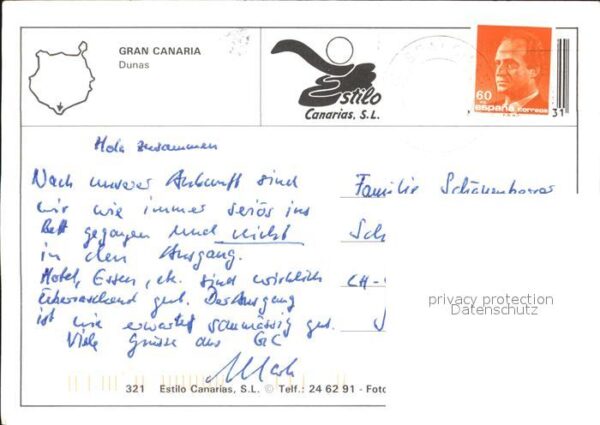 GRAN CANARIA
Dunas
Estilo
Canarias, S.L.
60
españa correos
31
Hola zusammen
Nach unserer Ankunft sind
wir wie immer seriös ins
Bett gegangen und nicht
in den Ausgang.
Hotel, Essen, etc. sind wirklich
überraschend gut. Der Ausgang
ist wie erwartet saumässig gut.
Viele Grüsse aus GC
Familie
Sch
CH-
privacy protection
Datenschutz
321 Estilo Canarias, S.L. © Telf.: 24 62 91 - Foto